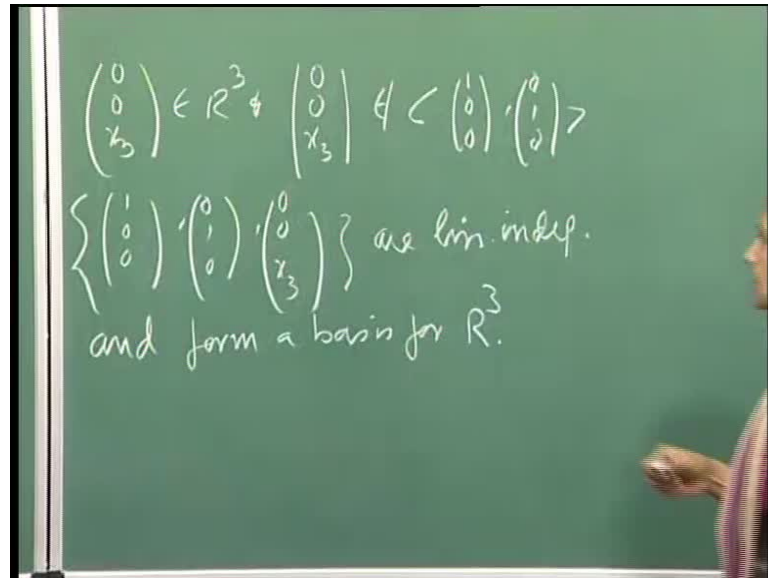 (0 0 x₃) ∈ R³ & (0 0 x₃) ∉ < (1 0 0), (0 1 0) >
{ (1 0 0), (0 1 0), (0 0 x₃) } are lin. indep.
and form a basis for R³.